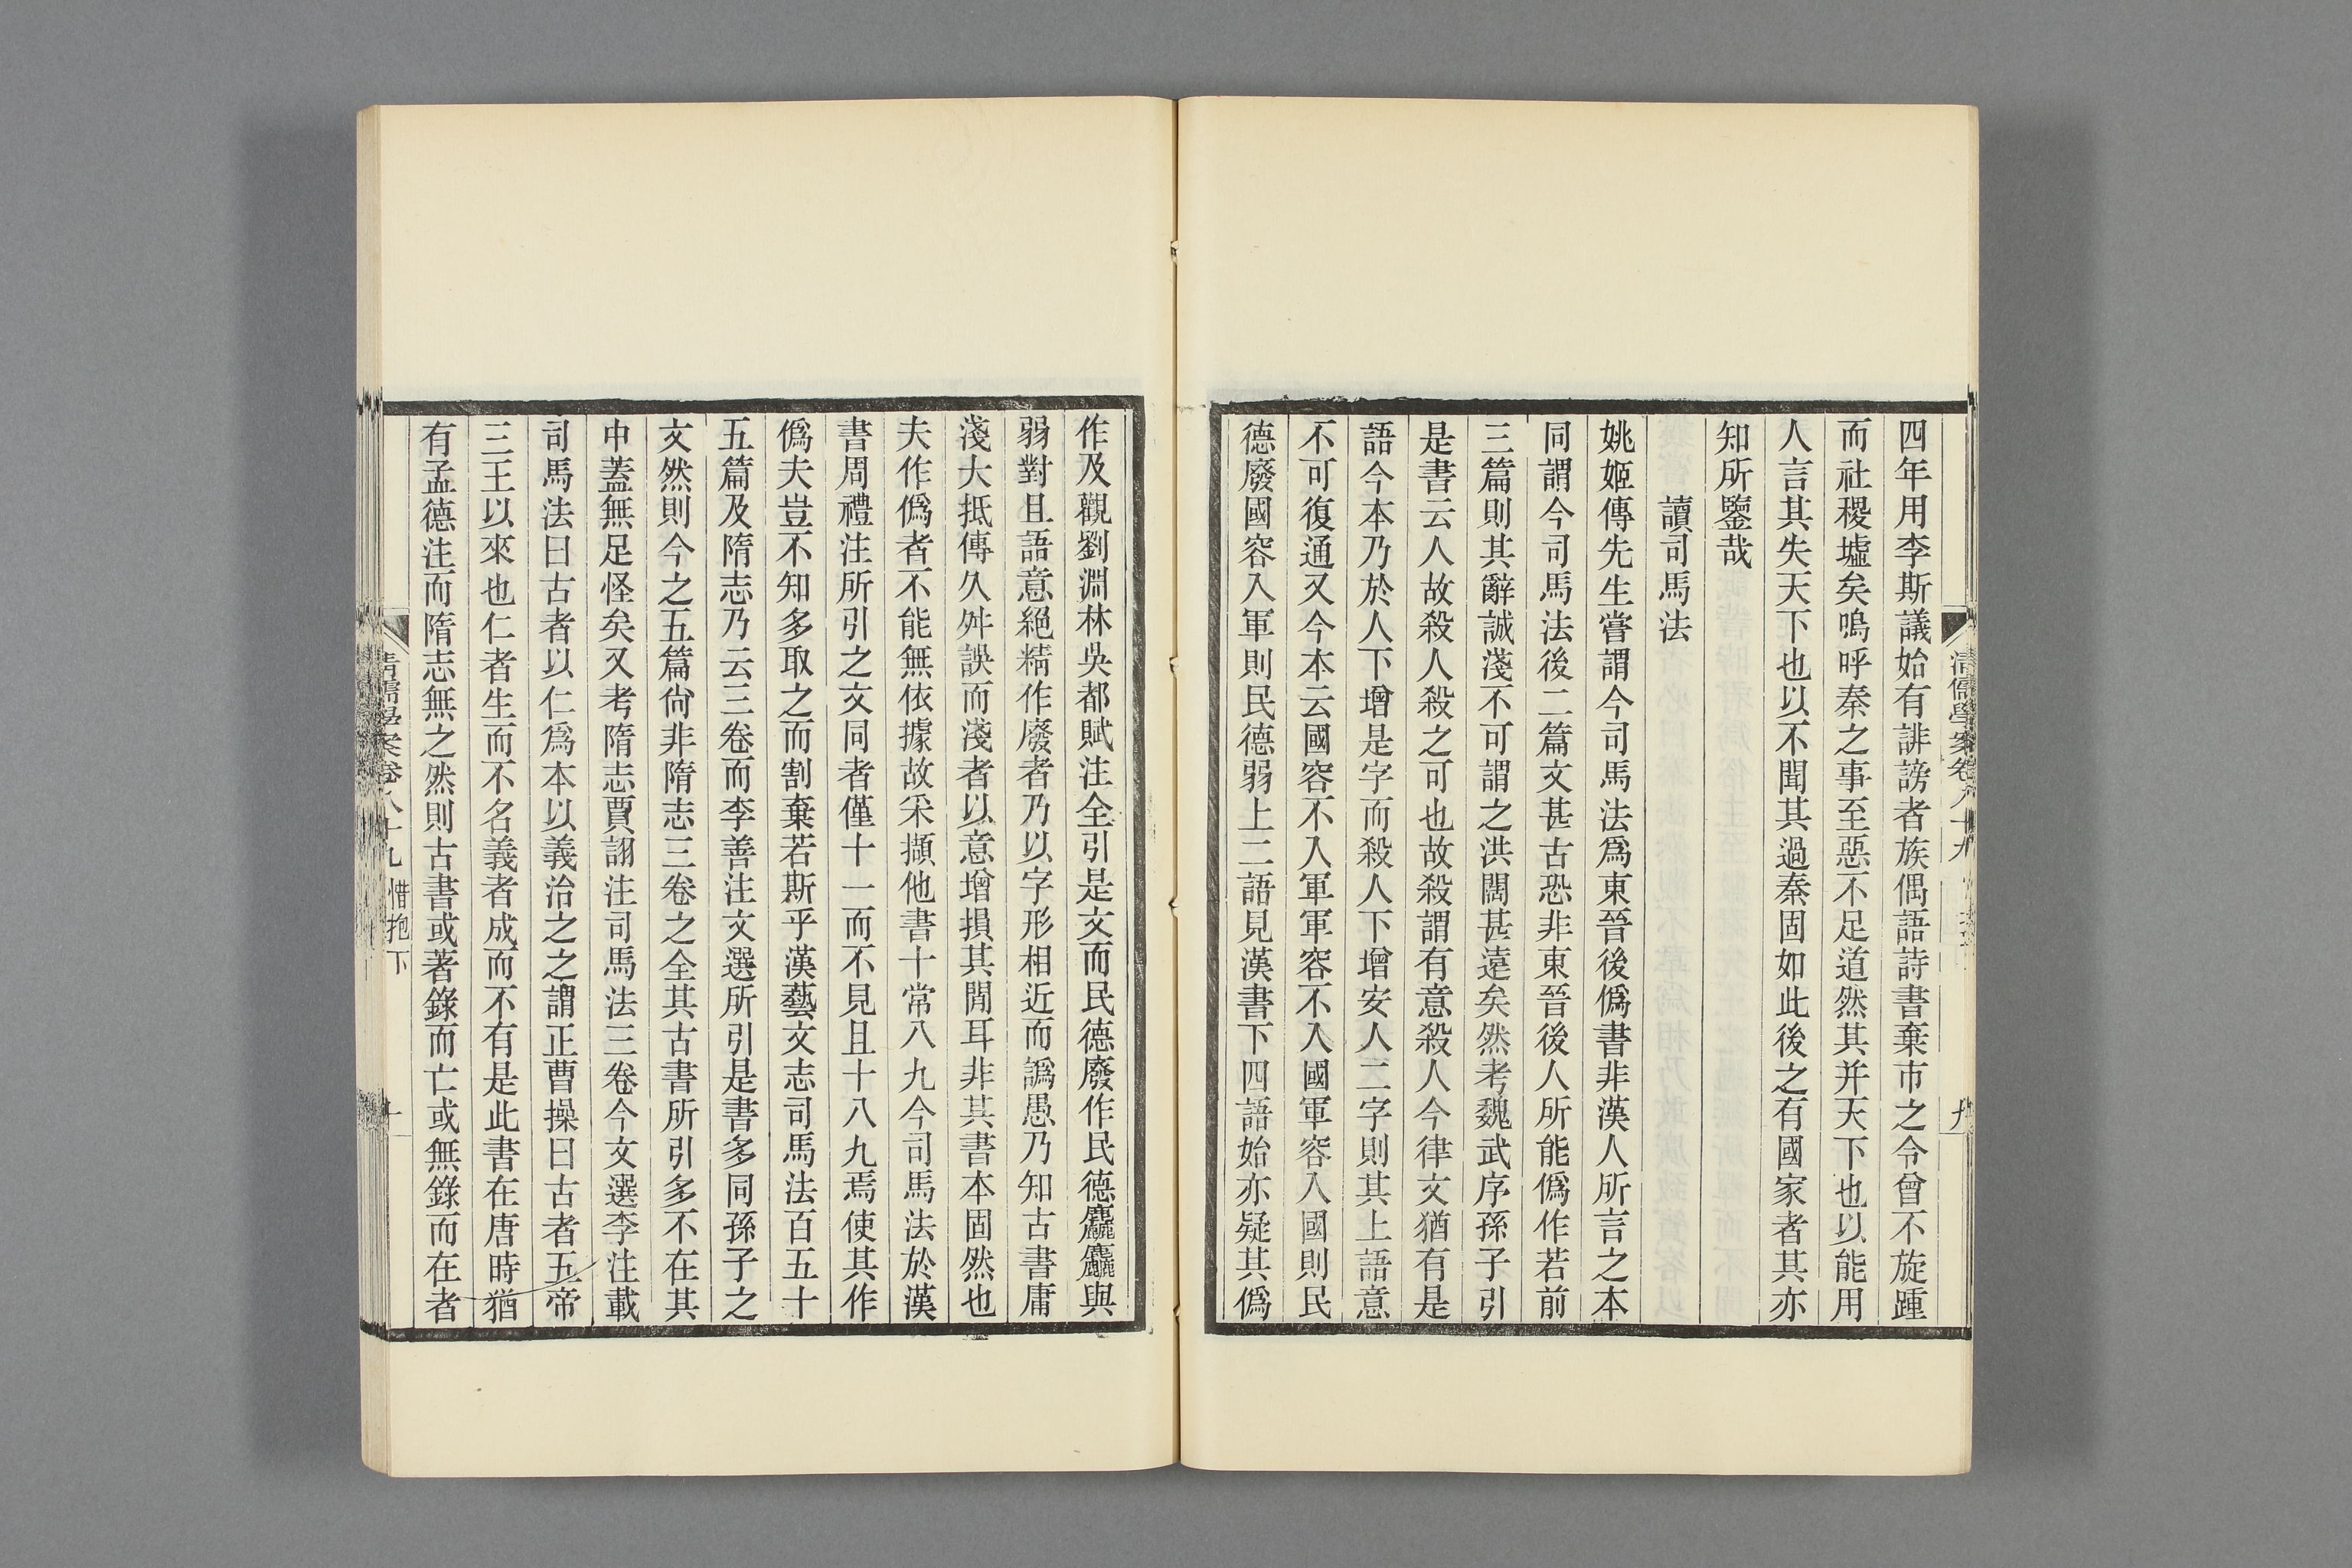 四年用李斯議始有誹謗者族偶語詩書棄市之令曾不旋踵
而社稷墟矣嗚呼秦之事至惡不足道然其并天下也以能用
人言其失天下也以不聞其過秦固如此後之有國家者其亦
知所鑒哉
讀司馬法
姚姬傳先生嘗謂今司馬法爲東晉後僞書非漢人所言之本
同謂今司馬法後二篇文甚古恐非東晉後人所能僞作若前
三篇則其辭誠淺不可謂之洪闊甚遠矣然考魏武序孫子引
是書云人故殺人殺之可也故殺謂有意殺人今律文猶有是
語今本乃於人下增是字而殺人下增安人二字則其上語意
不可復通又今本云國容不入軍軍容不入國軍容入國則民
德廢國容入軍則民德弱上二語見漢書下四語始亦疑其僞
作及觀劉淵林吳都賦注全引是文而民德廢作民德麤麤與
弱對且語意絕精作廢者乃以字形相近而譌愚乃知古書庸
淺大抵傳久舛誤而淺者以意增損其閒耳非其書本固然也
夫作僞者不能無依據故采擷他書十常八九今司馬法於漢
書周禮注所引之文同者僅十一而不見且十八九焉使其作
僞夫豈不知多取之而割棄若斯乎漢藝文志司馬法百五十
五篇及隋志乃云三卷而李善注文選所引是書多同孫子之
文然則今之五篇尙非隋志三卷之全其古書所引多不在其
中蓋無足怪矣又考隋志賈詡注司馬法三卷今文選李注載
司馬法曰古者以仁爲本以義治之之謂正曹操曰古者五帝
三王以來也仁者生而不名義者成而不有是此書在唐時猶
有孟德注而隋志無之然則古書或著錄而亡或無錄而在者
清儒學案卷八十九 惜抱下